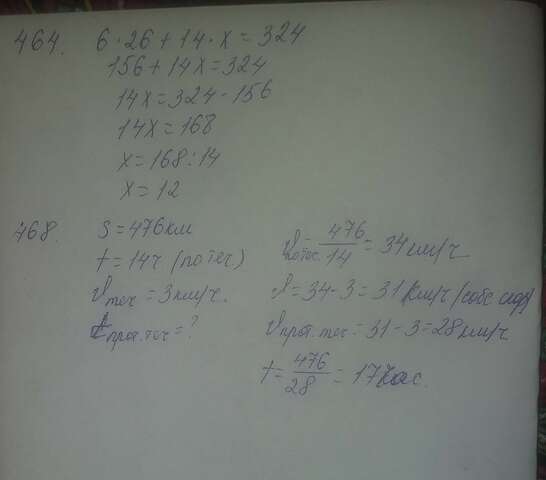 464. 6·26+14·x=324
156+14x=324
14x=324-156
14x=168
x=168:14
x=12
468. S=476км
t=14ч (по теч)
Vтеч=3км/ч.
tпрот.теч=?
Vпо теч.=476/14=34км/ч
V=34-3=31км/ч (собс скор)
Vпрот.теч=31-3=28км/ч
t=476/28=17час.